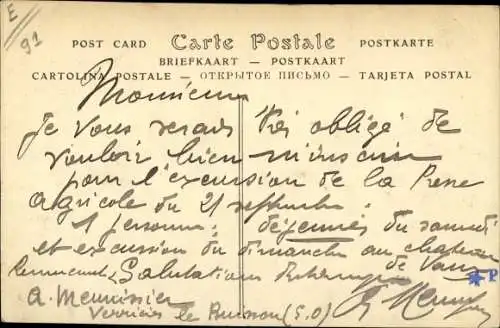 E/91
POST CARD Carte Postale POSTKARTE
BRIEFKAART — POSTKAART
CARTOLINA POSTALE — ОТКРЫТОЕ ПИСЬМО — TARJETA POSTAL
Monsieur
Je vous serais très obligé de
vouloir bien m'inscrire
pour l'excursion de la Presse
agricole du 21 septembre
1 personne; déjeuner du samedi
et excursion du dimanche au chateau
de Vaux
Salutations
A. Meunissier
Verrières le Buisson (S.O)
P